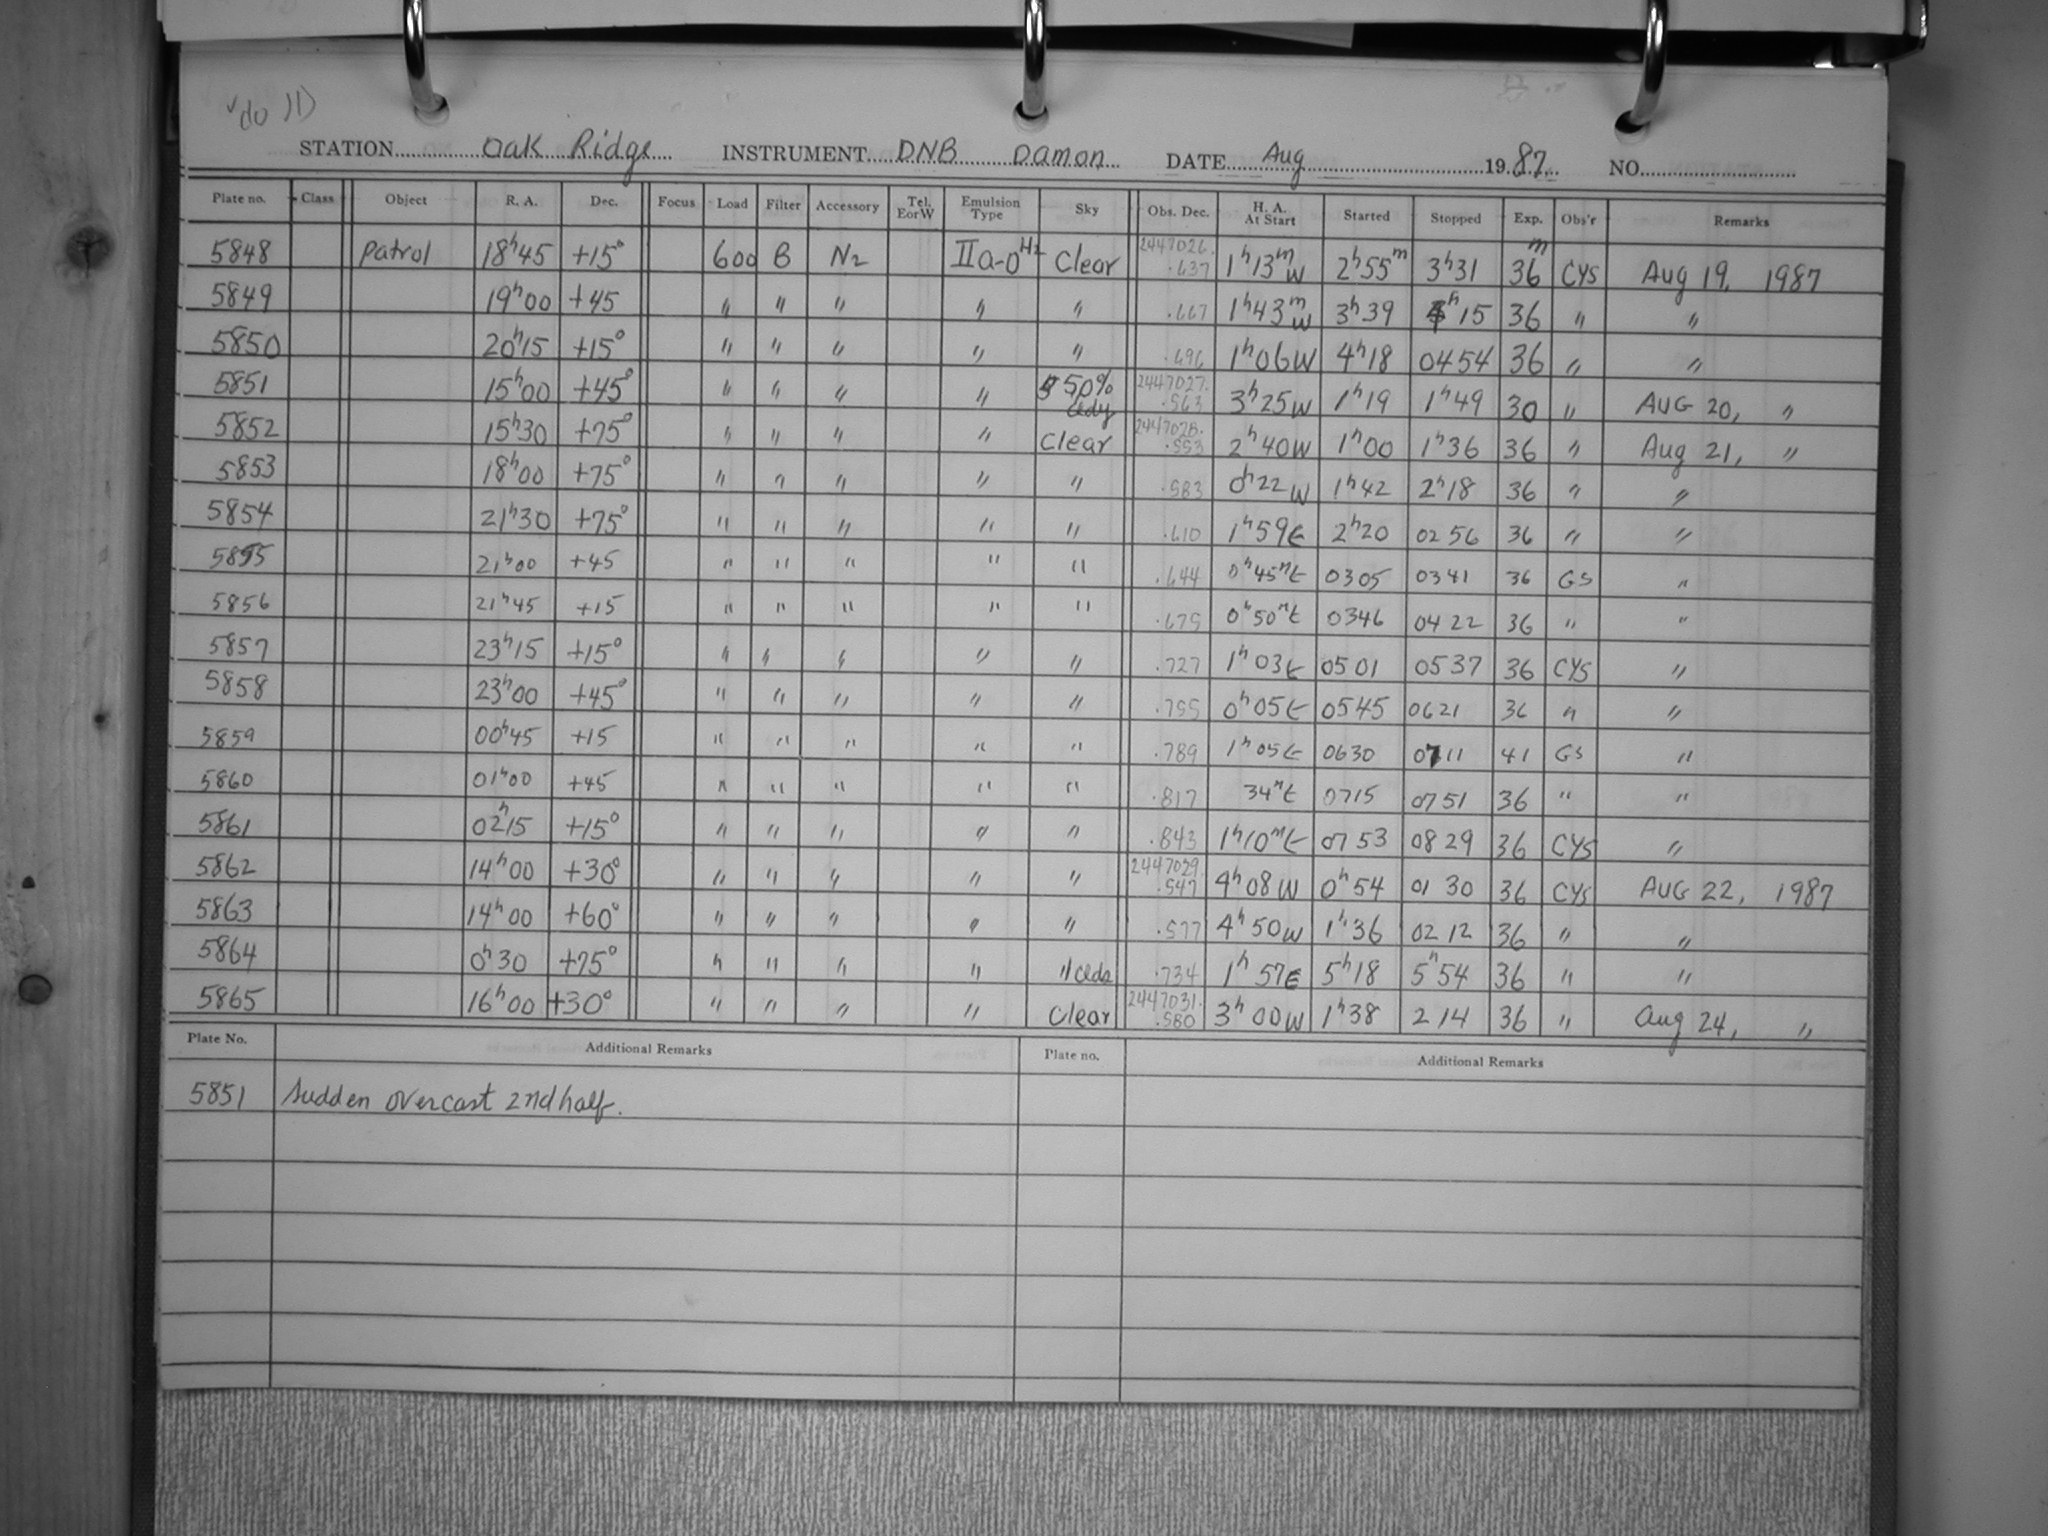 STATION Oak Ridge INSTRUMENT DNB Damon DATE Aug 1987 NO.
Plate no. Class Object R. A. Dec. Focus Load Filter Accessory Tel. EorW Emulsion Type Sky Obs. Dec. H. A. At Start Started Stopped Exp. Obs'r Remarks
5848 Patrol 18h45 +15° 600 B N2 IIa-O H2 Clear 2447026. .637 1h13m W 2h55m 3h31 36m CYS Aug 19, 1987
5849 19h00 +45 " " " " " .667 1h43m W 3h39 4h15 36 " "
5850 20h15 +15° " " " " " .696 1h06W 4h18 0454 36 " "
5851 15h00 +45° " " " " 50% cldy 2447027. .563 3h25W 1h19 1h49 30 " AUG 20, "
5852 15h30 +75° " " " " Clear 2447028. .553 2h40W 1h00 1h36 36 " Aug 21, "
5853 18h00 +75° " " " " " .583 0h22W 1h42 2h18 36 " "
5854 21h30 +75° " " " " " .610 1h59E 2h20 02 56 36 " "
5855 21h00 +45 " " " " " .644 0h45mE 0305 0341 36 GS "
5856 21h45 +15 " " " " " .675 0h50mE 0346 0422 36 " "
5857 23h15 +15° " " " " " .727 1h03E 0501 0537 36 CYS "
5858 23h00 +45° " " " " " .755 0h05E 0545 0621 36 " "
5859 00h45 +15 " " " " " .789 1h05E 0630 0711 41 GS "
5860 01h00 +45 " " " " " .817 34mE 0715 0751 36 " "
5861 02h15 +15° " " " " " .843 1h10mE 0753 0829 36 CYS "
5862 14h00 +30° " " " " " 2447029. .547 4h08W 0h54 01 30 36 CYS AUG 22, 1987
5863 14h00 +60° " " " " " .577 4h50W 1h36 02 12 36 " "
5864 0h30 +75° " " " " " .734 1h57E 5h18 5h54 36 " "
5865 16h00 +30° " " " " Clear 2447031. .580 3h00W 1h38 2 14 36 " Aug 24, "
Plate No. Additional Remarks Plate no. Additional Remarks
5851 Sudden overcast 2nd half.